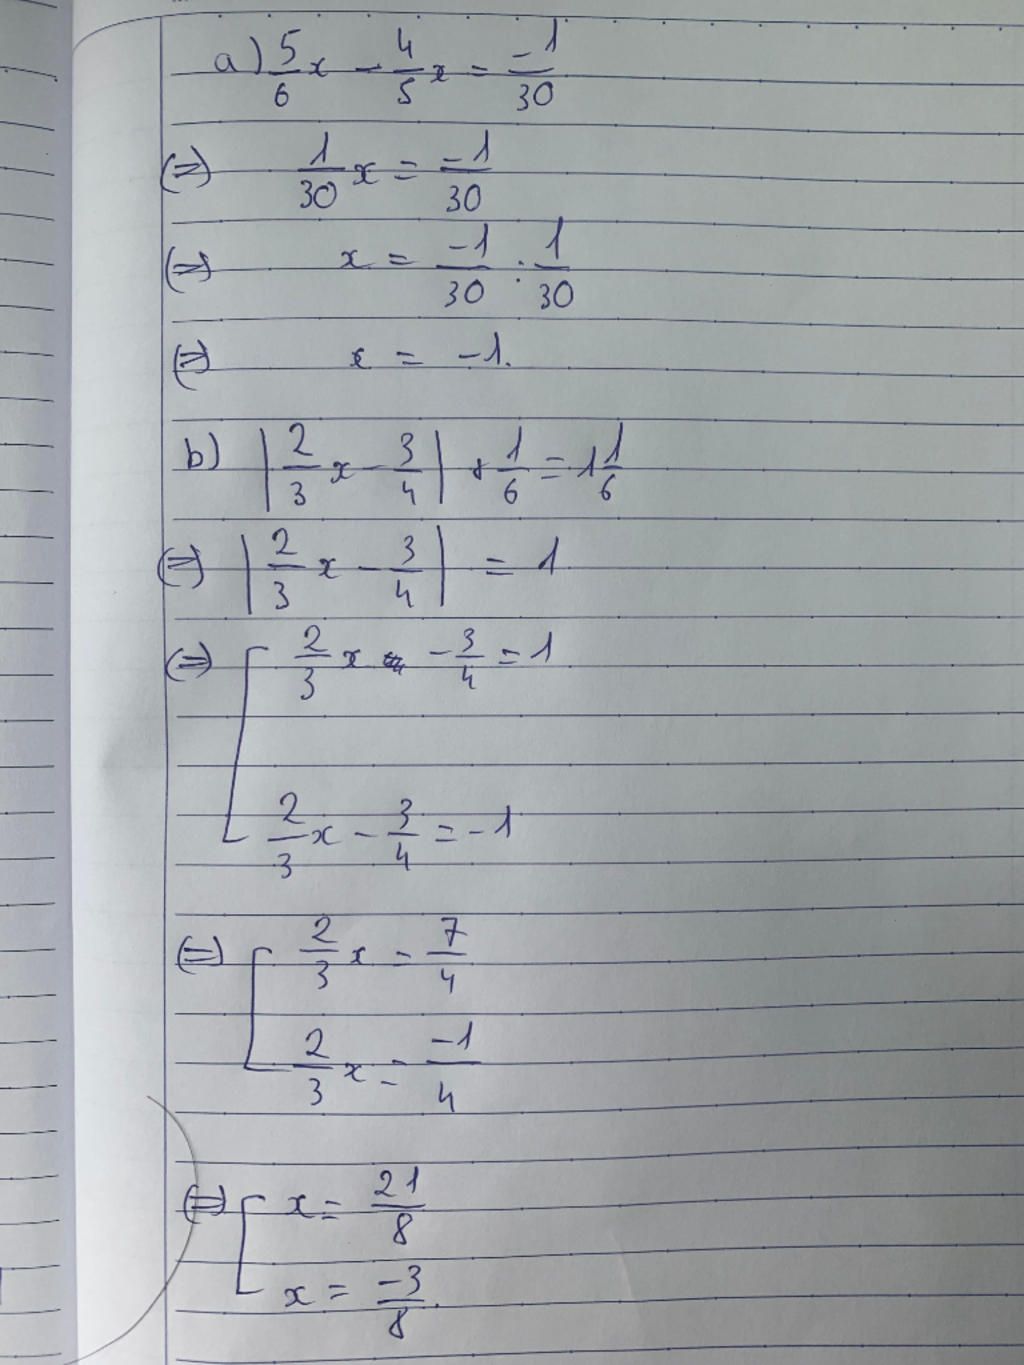 a) 5/6 x - 4/5 x = -1/30
(=) 1/30 x = -1/30
(=) x = -1/30 : 1/30
(=) x = -1.
b) |2/3 x - 3/4| + 1/6 = 1 1/6
(=) |2/3 x - 3/4| = 1
(=) [ 2/3 x - 3/4 = 1
2/3 x - 3/4 = -1
(=) [ 2/3 x = 7/4
2/3 x = -1/4
(=) [ x = 21/8
x = -3/8.